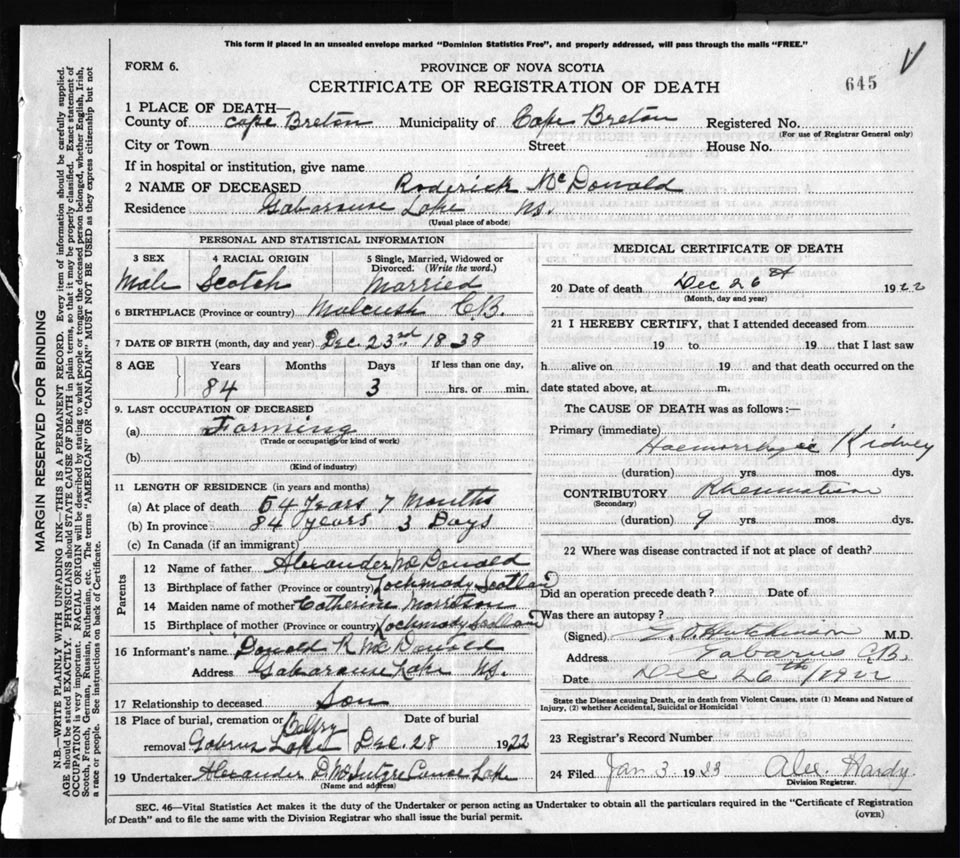 This form if placed in an unsealed envelope marked "Dominion Statistics Free", and properly addressed, will pass through the mails "FREE."
FORM 6.
PROVINCE OF NOVA SCOTIA
645
CERTIFICATE OF REGISTRATION OF DEATH
1 PLACE OF DEATH—
County of Cape Breton Municipality of Cape Breton Registered No.
(For use of Registrar General only)
City or Town Street House No.
If in hospital or institution, give name
2 NAME OF DECEASED Roderick McDonald
Residence Gabarouse Lake N.S.
(Usual place of abode)
PERSONAL AND STATISTICAL INFORMATION
3 SEX 4 RACIAL ORIGIN 5 Single, Married, Widowed or Divorced. (Write the word.)
Male Scotch Married
6 BIRTHPLACE (Province or country) C.B.
7 DATE OF BIRTH (month, day and year) Dec. 23rd 1838
8 AGE Years Months Days If less than one day,
84 3 hrs. or min.
9. LAST OCCUPATION OF DECEASED
(a) Farming
(Trade or occupation or kind of work)
(b)
(Kind of industry)
11 LENGTH OF RESIDENCE (in years and months)
(a) At place of death 54 Years 7 Months
(b) In province 84 years 3 Days
(c) In Canada (if an immigrant)
Parents
12 Name of father Alexander McDonald
13 Birthplace of father (Province or country) Lochmady Scotland
14 Maiden name of mother Catherine Morrison
15 Birthplace of mother (Province or country) Lochmady Scotland
16 Informant's name Donald R McDonald
Address Gabarouse Lake N.S.
17 Relationship to deceased Son
18 Place of burial, cremation or removal Date of burial
Gabrus Lake Dec. 28 1922
19 Undertaker Alexander D. Canoe Lake
(Name and address)
MEDICAL CERTIFICATE OF DEATH
20 Date of death Dec 26 1922
(Month, day and year)
21 I HEREBY CERTIFY, that I attended deceased from
19 to 19 that I last saw
h alive on 19 and that death occurred on the
date stated above, at m.
The CAUSE OF DEATH was as follows:—
Primary (immediate)
Haemorrhage Kidney
(duration) yrs mos. dys.
CONTRIBUTORY Rheumatism
(Secondary)
(duration) 9 yrs mos. dys.
22 Where was disease contracted if not at place of death?
Did an operation precede death? Date of
Was there an autopsy?
(Signed) Hutchinson M.D.
Address Gabarus C.B.
Date Dec 26th/1922
State the Disease causing Death, or in death from Violent Causes, state (1) Means and Nature of Injury, (2) whether Accidental, Suicidal or Homicidal
23 Registrar's Record Number
24 Filed Jan 3 1923 Alex. Hardy
Division Registrar.
SEC. 46—Vital Statistics Act makes it the duty of the Undertaker or person acting as Undertaker to obtain all the particulars required in the "Certificate of Registration
of Death" and to file the same with the Division Registrar who shall issue the burial permit.
(OVER)
MARGIN RESERVED FOR BINDING
N.B.—WRITE PLAINLY WITH UNFADING INK—THIS IS A PERMANENT RECORD. Every item of information should be carefully supplied.
AGE should be stated EXACTLY. PHYSICIANS should STATE CAUSE OF DEATH in plain terms, so that it may be properly classified. Exact statement of
OCCUPATION is very important. RACIAL ORIGIN will be described by stating to what people or tongue the deceased person belonged, whether English, Irish,
Scotch, French, German, Russian, Ruthenian, etc. The terms "AMERICAN" or "CANADIAN" MUST NOT BE USED as they express citizenship but not
a race or people. See instructions on back of Certificate.